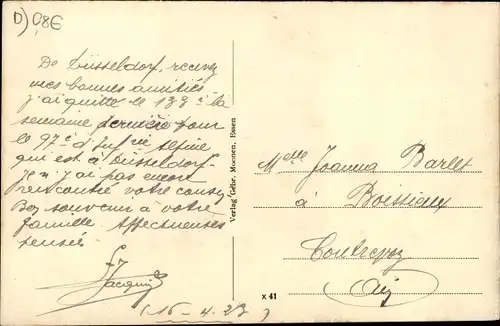 D) 08€
De Düsseldorf, recevez
mes bonnes amitiés
j'ai quitté le 133e la
semaine dernière pour
le 97e d'Inf
qui est à Düsseldorf
Je n'y ai pas encore
rencontré votre
Bon souvenir à votre
famille. Affectueuses
pensées
Jacquin
(16-4-23)
Verlag Gebr. Moonen, Essen
Melle Joanna Barlet
à Boissieu
Contrevoz
Ain
x 41